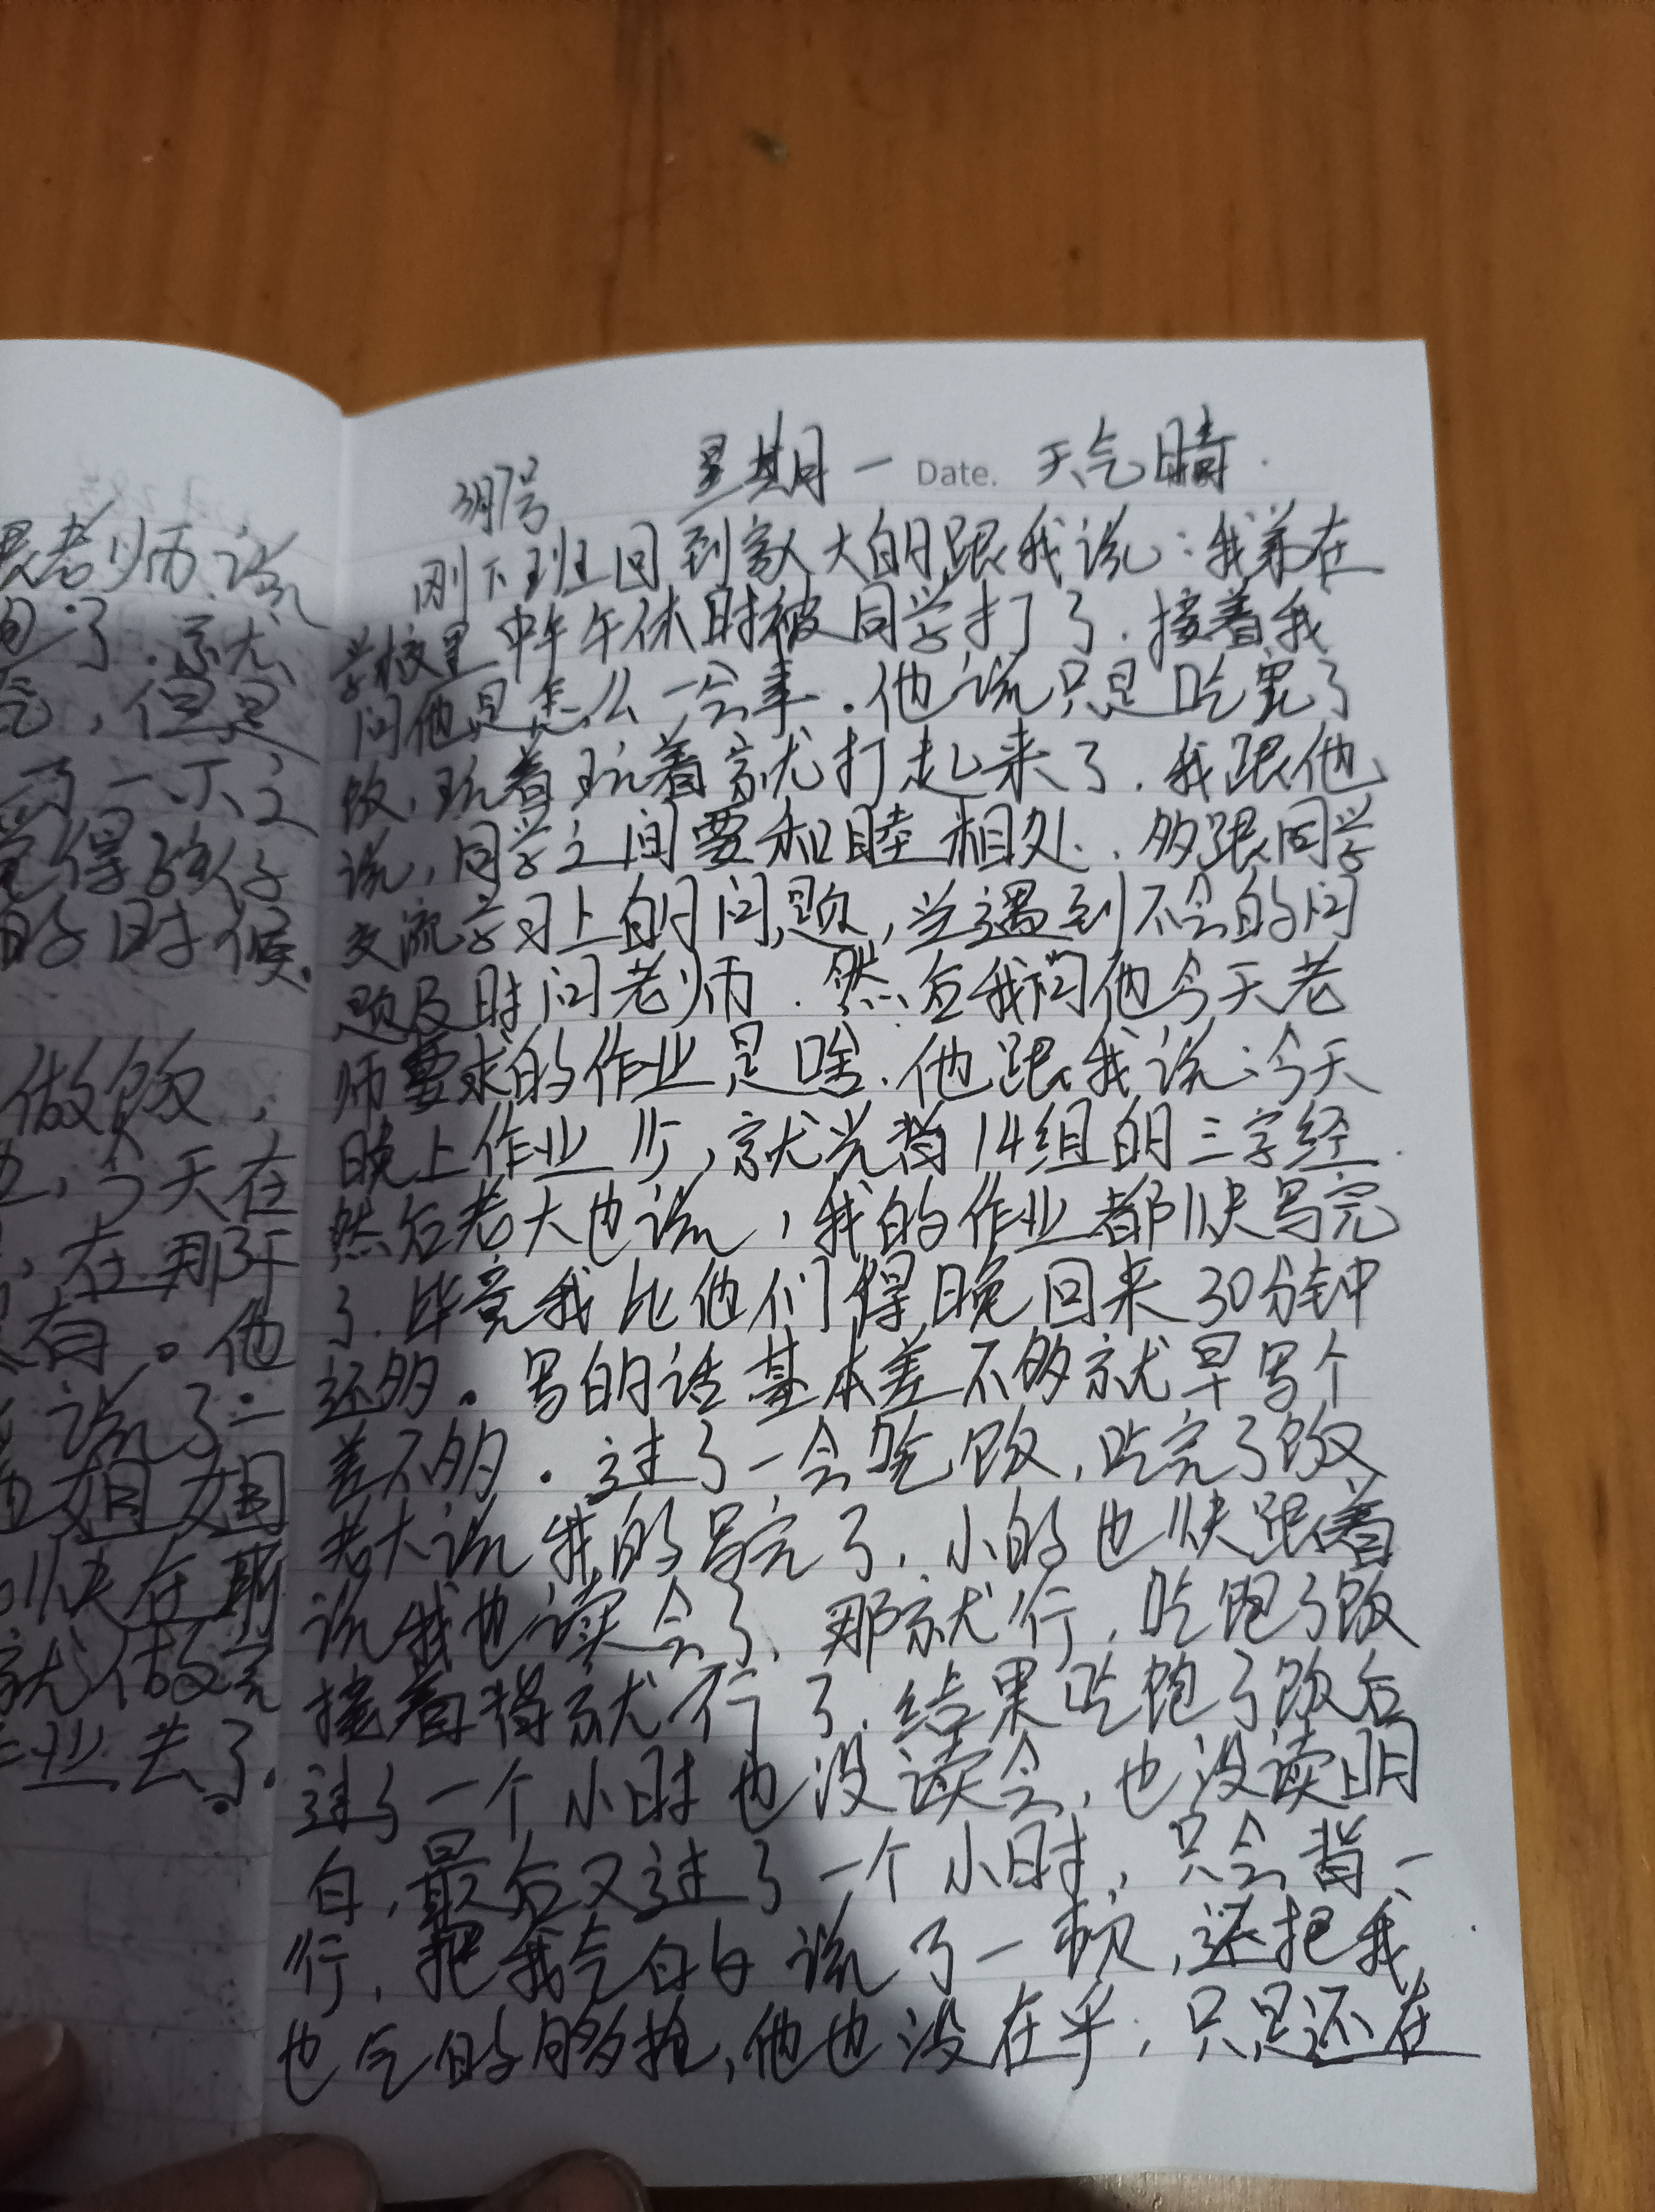 跟老师说
的了.就
气,但是
两一不之
觉得孩子
的时候.
做饭,
也,今天在
,在那写
没有。他
说了一
他姐姐
快在期
就做完
作业去了.
3月7号 星期一 Date. 天气晴.
刚下班回到家大的跟我说:我弟在
学校里中午午休时被同学打了.接着我
问他是怎么一会事.他说只是吃完了
饭,玩着玩着就打起来了.我跟他
说,同学之间要和睦相处.多跟同学
交流学习上的问题,当遇到不会的问
题及时问老师.然后我问他今天老
师要求的作业是啥.他跟我说:今天
晚上作业少,就光背14组的三字经.
然后老大也说,我的作业都快写完
了.毕竟我比他们得晚回来30分钟
还多。写的话基本差不多就早写个
差不多.过了一会吃饭,吃完了饭
老大说我的写完了.小的也快跟着
说我也读会了,那就行,吃饱了饭
接着背就行了.结果吃饱了饭后
过了一个小时也没读会,也没读明
白,最后又过了一个小时,只会背一
行,把我气的白说了一顿,还把我
也气的够抢,他也没在乎,只是还在